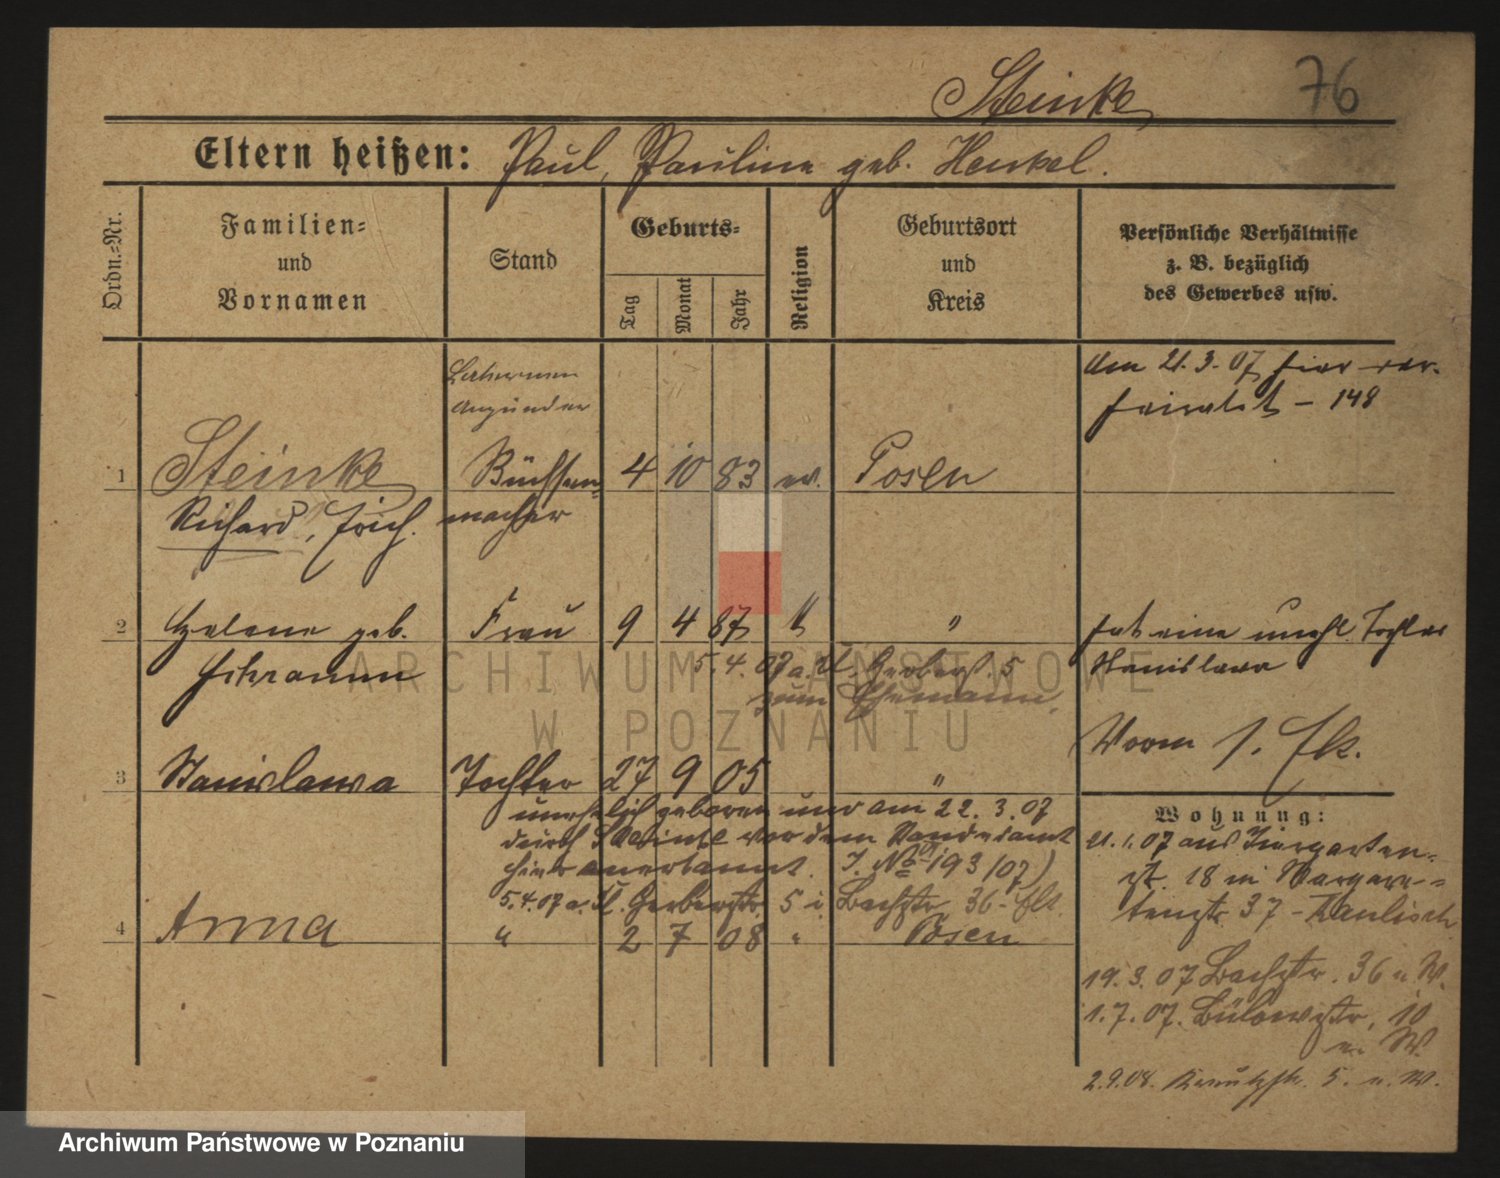 Steinke
76
Eltern heißen: Paul, Pauline geb. Henkel.
Ordn.=Nr.
Familien=
und
Vornamen
Stand
Geburts=
Tag
Monat
Jahr
Religion
Geburtsort
und
Kreis
Persönliche Verhältnisse
z. B. bezüglich
des Gewerbes usw.
Laternen
Anzünder
am 21.3.07 hier ver-
heiratet - 148
1 Steinke Büchsen- 4 10 83 ev. Posen
Richard, Erich. macher
2 Helene geb. Frau 9 4 87 k " hat eine unehl. Tochter
Schramm 5.4.07 a. Kl. Gerberstr. 5
Stanislawa
zum Ehemann.
Vorm s. Ek.
3 Stanislawa Tochter 27 9 05 "
unehelich geboren und am 22.3.07
durch Steinke vor dem Standesamt
hier anerkannt. J. No 193/07)
5.4.07 a. Kl. Gerberstr. 5 i Bachstr. 36
4 Anna " 2 7 08 " Posen
Wohnung:
21.1.07 aus Tiergarten-
str. 18 in Margare-
tenstr. 37 -
19.3.07 Bachstr. 36 n. W.
1.7.07. Bülowstr. 10
n. W.
2.9.08. Kreutzstr. 5. n. W.
ARCHIWUM PAŃSTWOWE
W POZNANIU
Archiwum Państwowe w Poznaniu